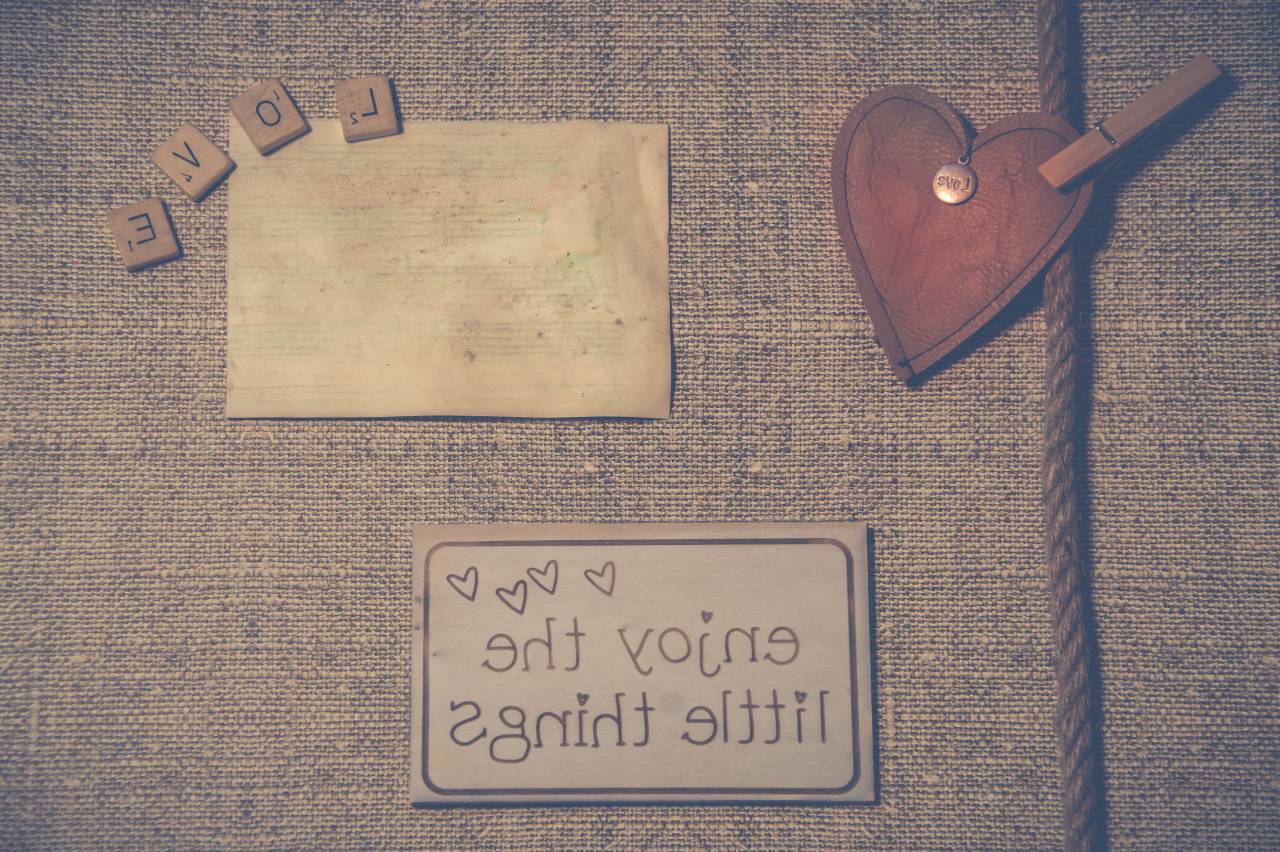 LOVE
LOVE
enjoy the
little things